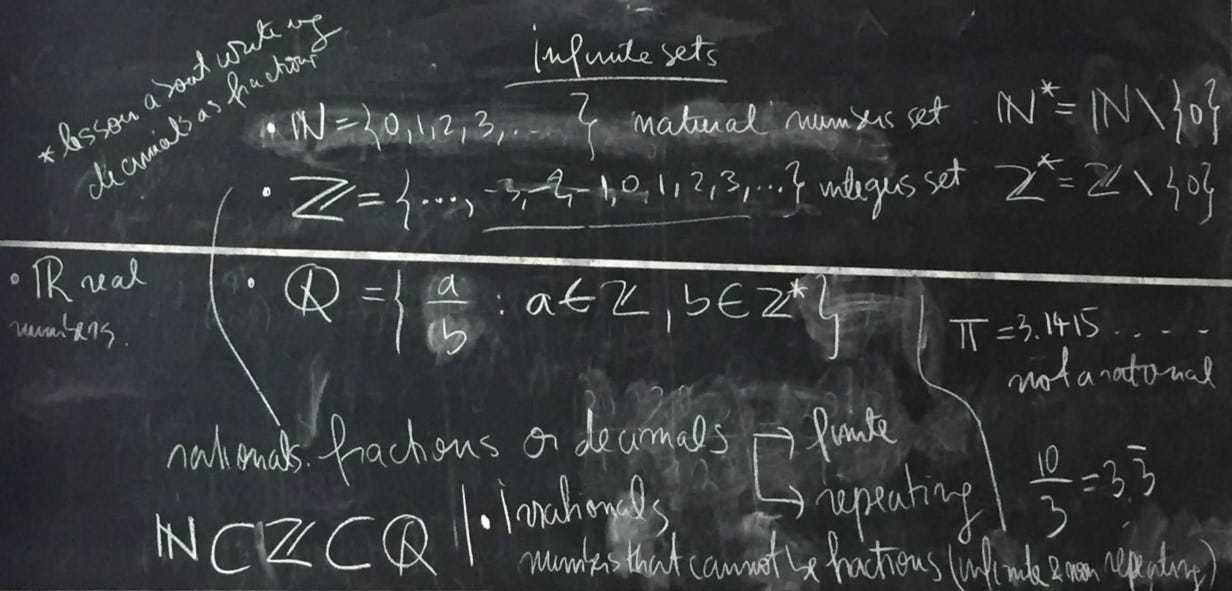 * lesson about writing
decimals as fractions
infinite sets
• ℕ = {0, 1, 2, 3, .....} natural numbers set ℕ* = ℕ \ {0}
• ℤ = {..., -3, -2, -1, 0, 1, 2, 3, ...} integers set ℤ* = ℤ \ {0}
• ℝ real
numbers.
• ℚ = { a/b : a ∈ ℤ, b ∈ ℤ* }
π = 3.1415.....
not a rational
rationals. fractions or decimals → finite
→ repeating
10/3 = 3.3̅
ℕ ⊂ ℤ ⊂ ℚ
• Irrationals
numbers that cannot be fractions (infinite & non repeating)